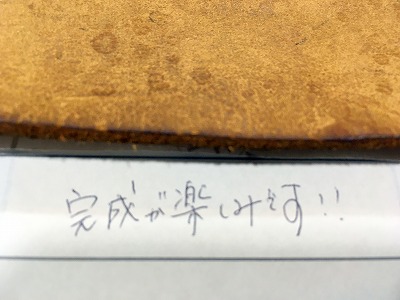 完成が楽しみです!!